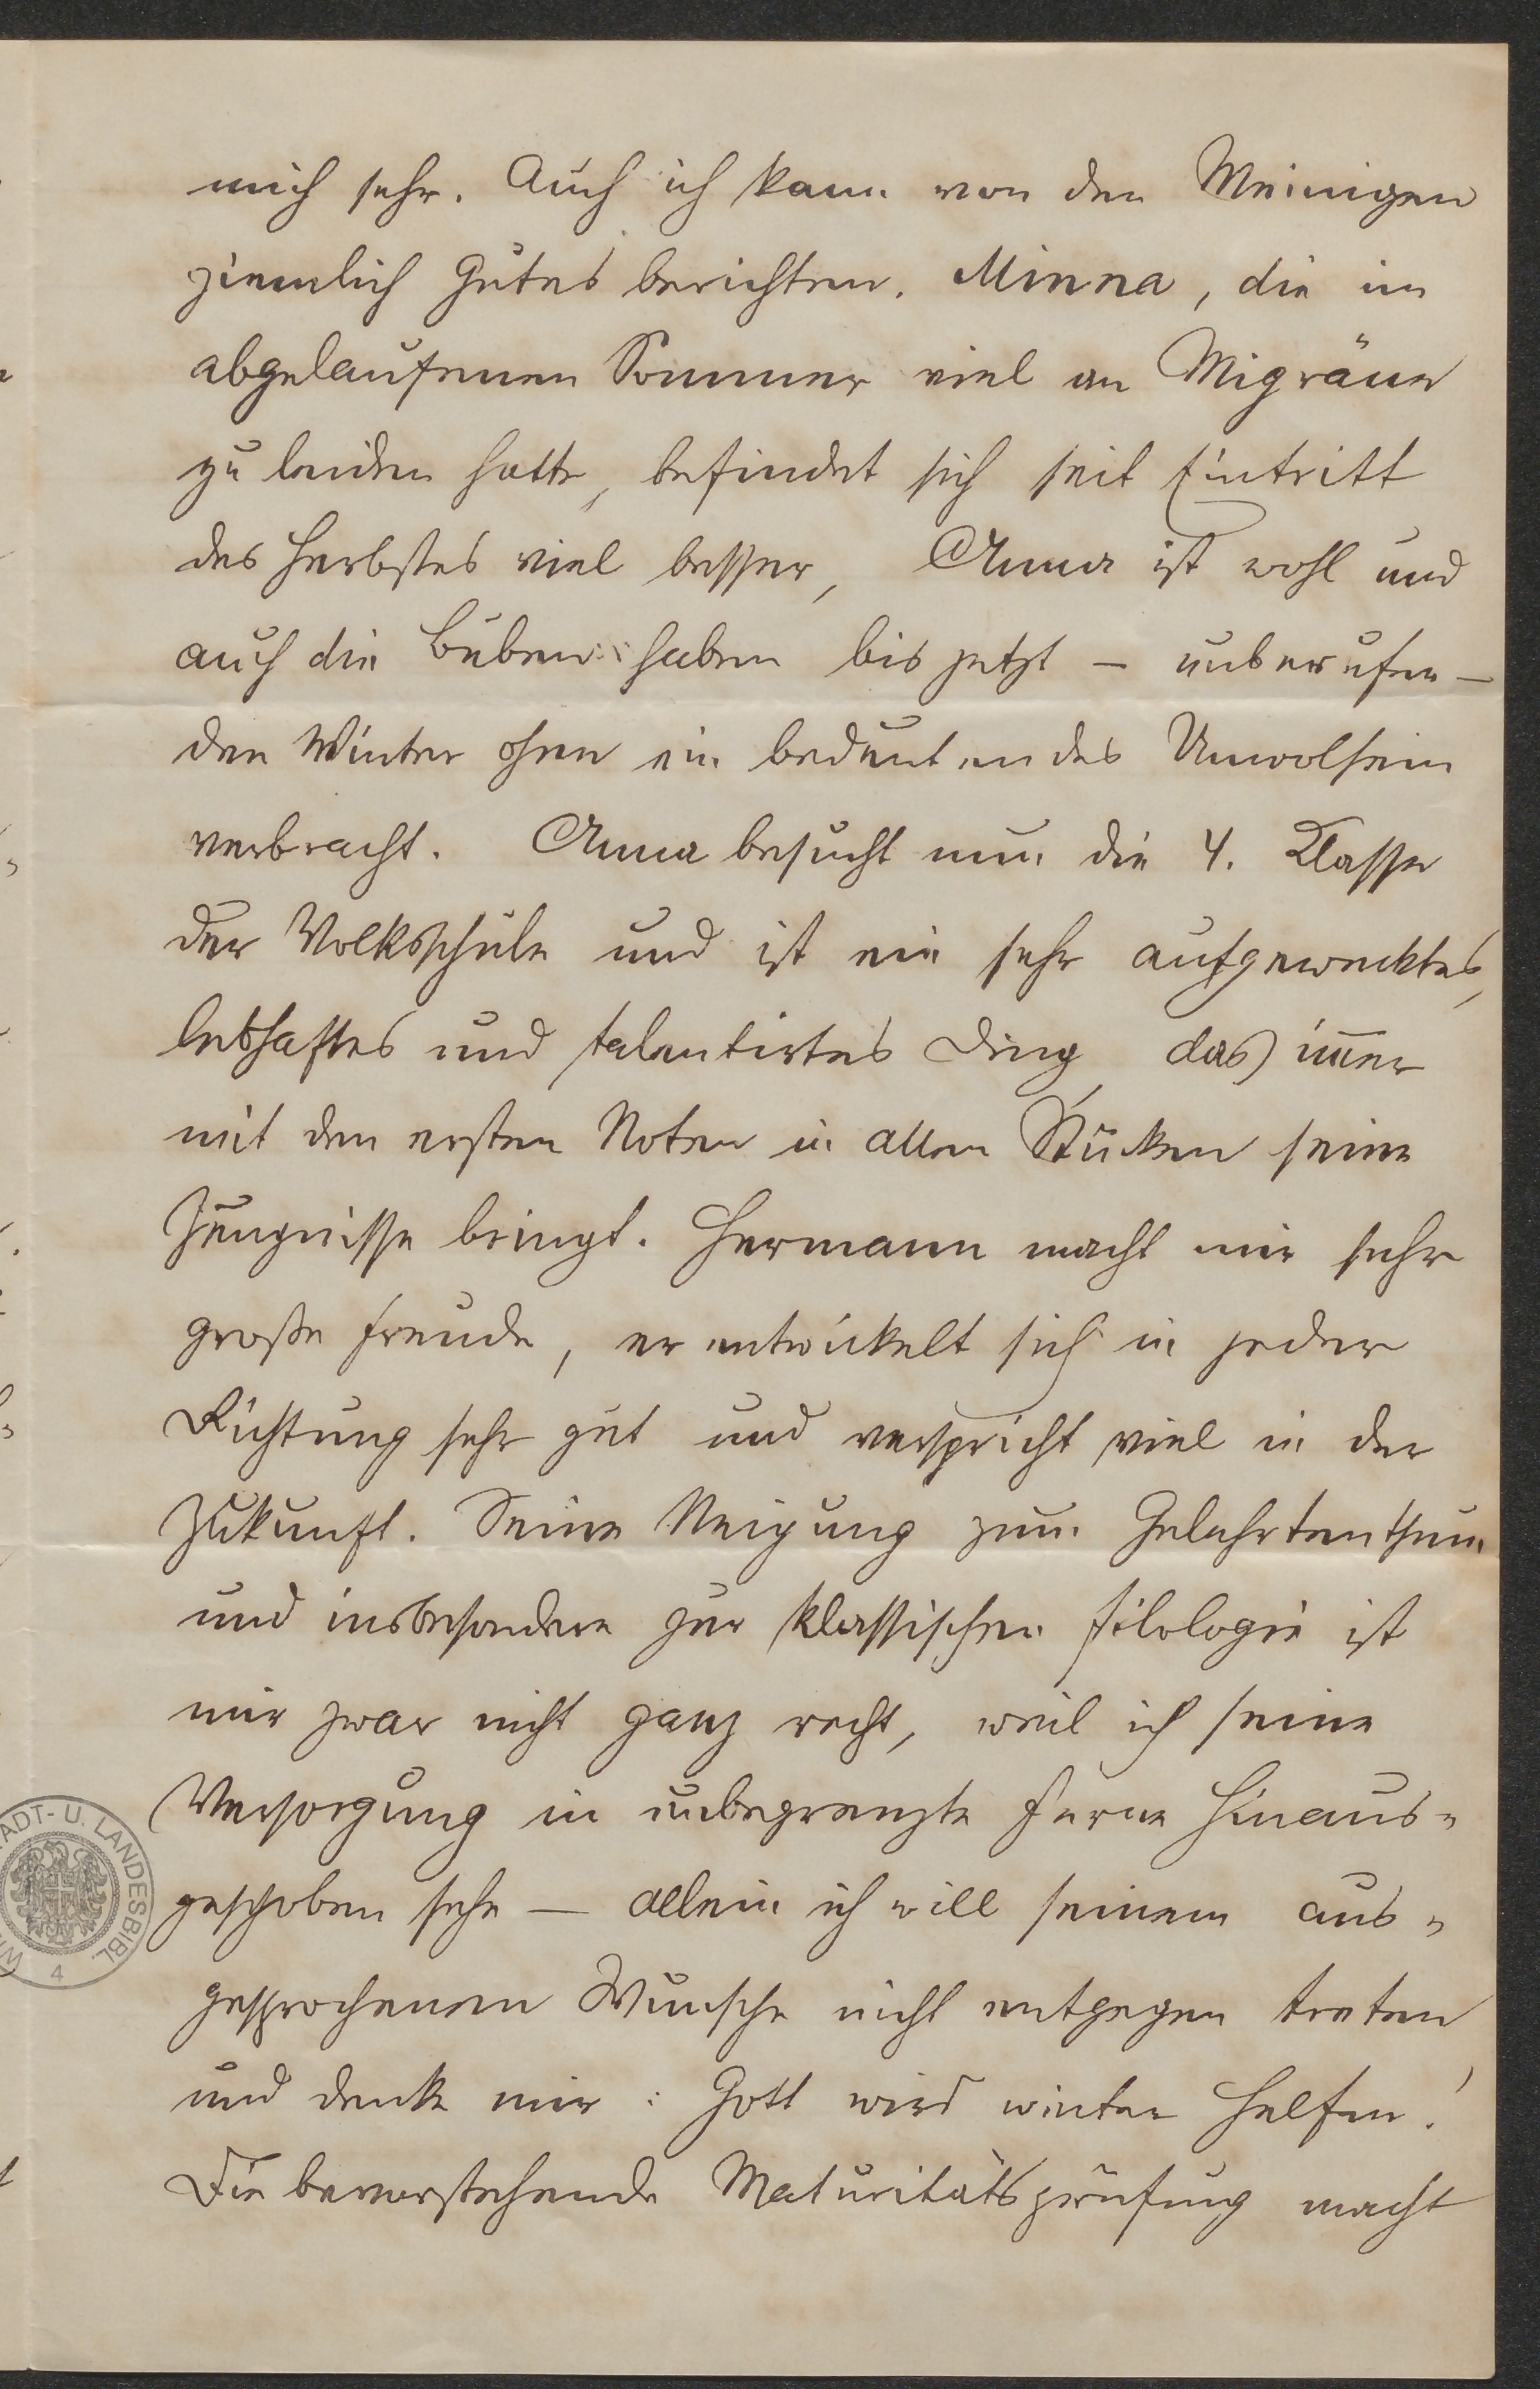 mich sehr. Auch ich kann von den Meinigen
ziemlich Gutes berichten. Minna, die im
abgelaufenen Sommer viel an Migräne
zu leiden hatte, befindet sich seit Eintritt
des Herbstes viel besser, Anna ist wohl und
auch die Buben haben bis jetzt – unberufen –
den Winter ohne ein bedeutendes Unwolsein
verbracht. Anna besucht nun die 4. Klasse
der Volksschule und ist ein sehr aufgewecktes,
lebhaftes und talentirtes Ding, das im̅er
mit den ersten Noten in allen Stücken seine
Zeugnisse bringt. Hermann macht mir sehr
große Freude, er entwickelt sich in jeder
Richtung sehr gut und verspricht viel in der
Zukunft. Seine Neigung zum Gelehrtenthum
und insbesondere zur klassischen Filologie ist
mir zwar nicht ganz recht, weil ich seine
Versorgung in unbegrenzte Ferne hinaus=
geschoben sehe — allein ich will seinem aus=
gesprochenen Wunsche nicht entgegen treten
und denke mir: Gott wird weiter helfen!
Die bevorstehende Maturitätsprüfung macht
STADT- U. LANDESBIBL.
4